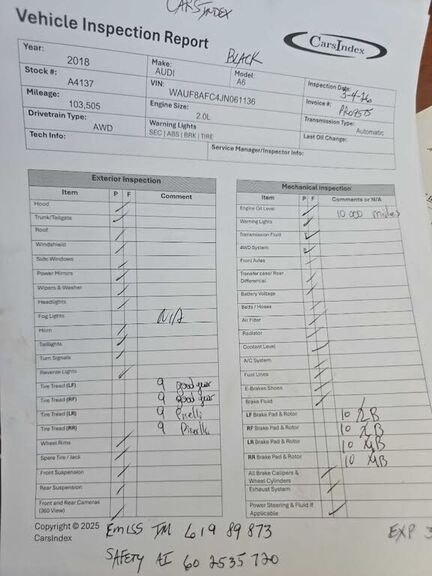 CARSINDEX
Vehicle Inspection Report
BLACK
CarsIndex
Year: 2018 Make: AUDI Model: A6 Inspection Date: 3-4-26
Stock #: A4137 VIN: WAUF8AFC4JN061136 Invoice #:
Mileage: 103,505 Engine Size: 2.0L Transmission Type: Automatic
Drivetrain Type: AWD Warning Lights SEC | ABS | BRK | TIRE Last Oil Change:
Tech Info: Service Manager/Inspector Info:
Exterior Inspection
Item P F Comment
Hood
Trunk/Tailgate
Roof
Windshield
Side Windows
Power Mirrors
Wipers & Washer
Headlights
Fog Lights N/A
Horn
Taillights
Turn Signals
Reverse Lights
Tire Tread (LF) 9 Good year
Tire Tread (RF) 9 Good year
Tire Tread (LR) 9 Pirelli
Tire Tread (RR) 9 Pirelli
Wheel Rims
Spare Tire / Jack
Front Suspension
Rear Suspension
Front and Rear Cameras
(360 View)
Mechanical Inspection
Item P F Comments or N/A
Engine Oil Level 10 000 miles
Warning Lights
Transmission Fluid
4WD System
Front Axles
Transfer case/ Rear
Differential
Battery Voltage
Belts / Hoses
Air Filter
Radiator
Coolant Level
A/C System
Fuel Lines
E-Brakes Shoes
Brake Fluid
LF Brake Pad & Rotor 10
RF Brake Pad & Rotor 10
LR Brake Pad & Rotor 10
RR Brake Pad & Rotor 10
All Brake Calipers &
Wheel Cylinders
Exhaust System
Power Steering & Fluid if
Applicable
Copyright © 2025
CarsIndex
EMISS TM 619 89 873
SAFETY AI 60 2535 720
EXP 3